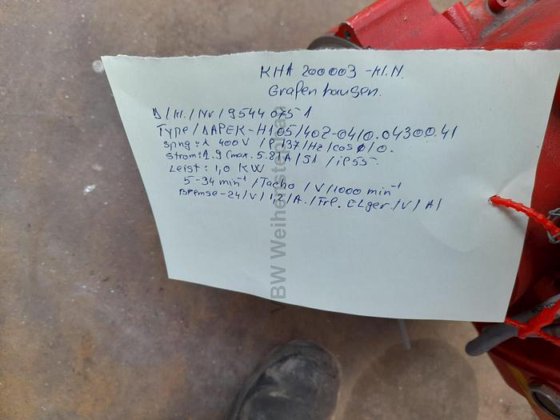 KHA 200003 -M.N.
Grafenhausen.
D/M./Nr/9544075-1
Type/DAPEK-H105/402-04/0.04300.41
Spng: λ 400V/P 137/Hz/cosφ/0.
Strom: 1.9(max. 5.81A/S1/IP55-
Leist: 1,0 KW
5-34 min⁻¹/Tacho/V/1000 min⁻¹
Bremse-24/V/1,2/A./Fre. /V/A/
BW Weihenstephan